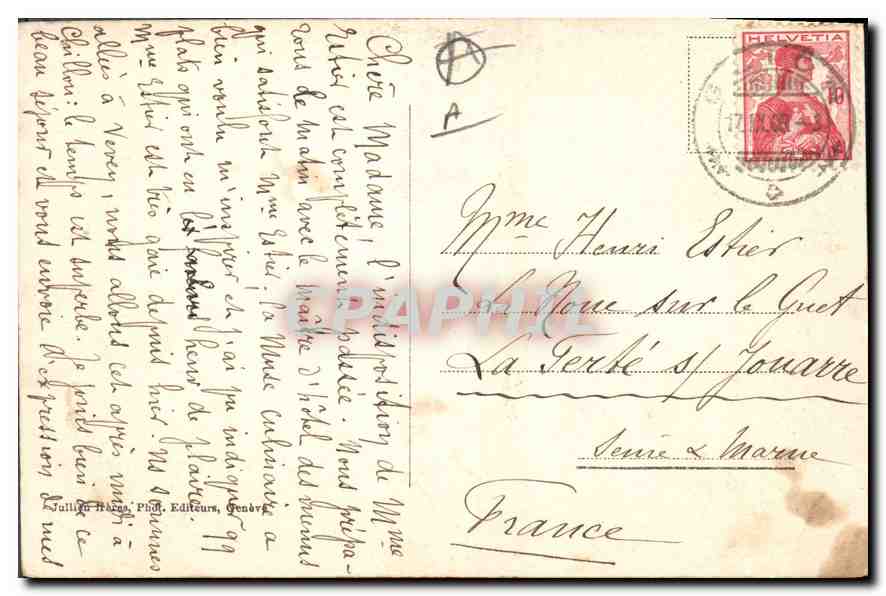 Chère Madame, l'indisposition de Mme
Estier est complètement passée. Nous prépa-
rons le matin avec le maître d'hôtel des menus
qui satisfont Mme Estier; la Muse culinaire a
bien voulu m'inspirer et j'ai pu indiquer qq
plats qui ont eu l' heur de plaire.
Mme Estier est très gaie depuis hier. Ns sommes
allés à Vevey, nous allons cet après midi à
Chillon: le temps est superbe. Je jouis bien de ce
beau séjour et vous envoie l'expression de mes
A
A
HELVETIA
10
17.IX.
Mme Henri Estier
La Noue sur le Guet
La Ferté s/ Jouarre
Seine & Marne
France
Jullien frères, Phot. Editeurs, Genève
CPAPHIL